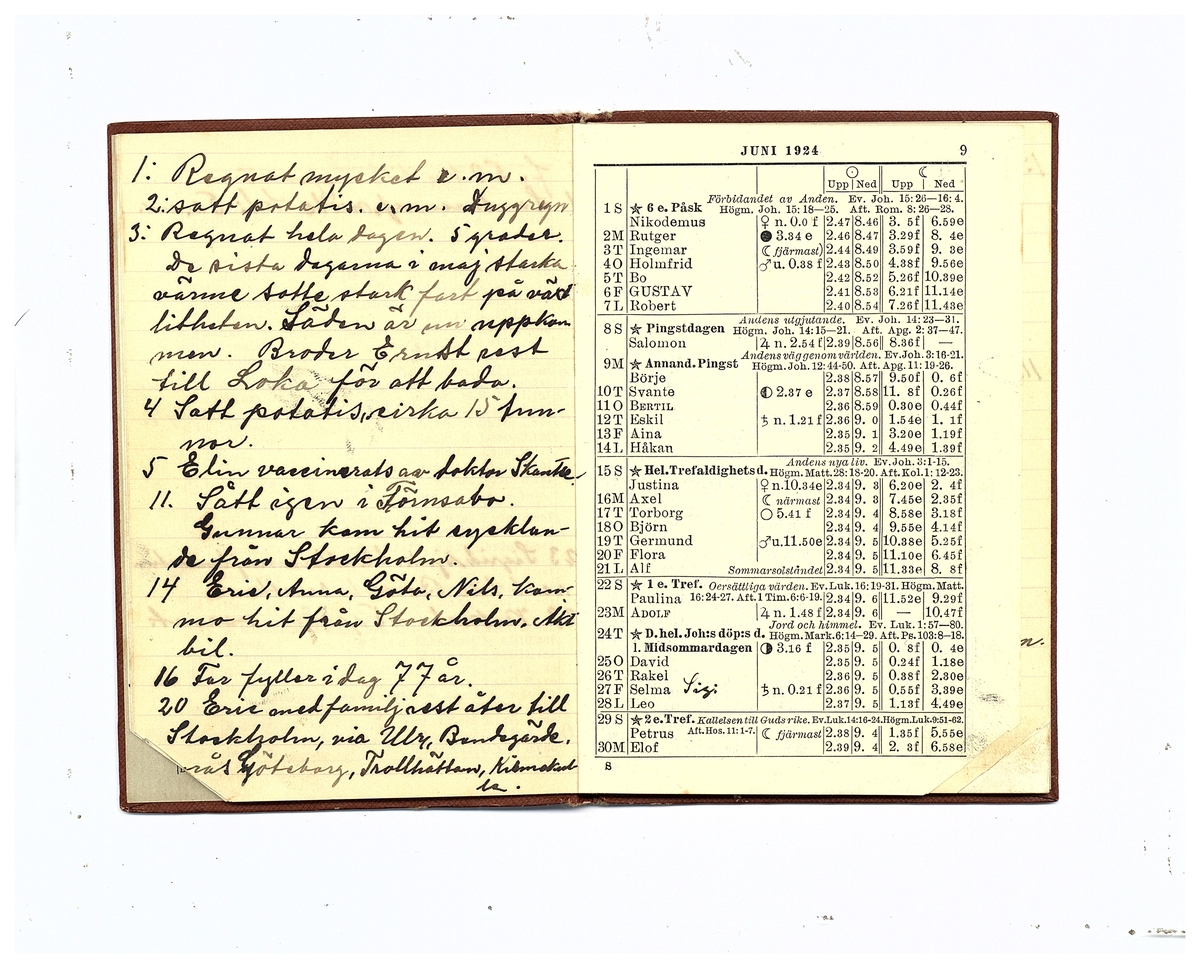 1: Regnat mycket e.m.
2: satt potatis. e.m. Duggregn
3: Regnat hela dagen. 5 grader.
De sista dagarna i maj starka
värme satte stark fart på växt
litheten. Säden är nu uppkom
men. Broder Ernst rest
till Loka för att bada.
4 Satt potatis, cirka 15 tun-
nor.
5 Elin vaccinerats av doktor
11. Sått igen i
Gunnar kom hit cycklan-
de från Stockholm.
14 Eric, Anna, Göta, Nils, kom-
mo hit från Stockholm.
bil.
16 Far fyller i dag 77 år.
20 Eric med familj rest åter till
Stockholm, via
Göteborg, Trollhättan,
JUNI 1924 9
☉ ☾
Upp Ned Upp Ned
Förbidandet av Anden. Ev. Joh. 15: 26—16: 4.
1 S ★ 6 e. Påsk Högm. Joh. 15: 18—25. Aft. Rom. 8: 26—28.
Nikodemus ♀ n. 0.0 f 2.47 8.46 3. 5f 6.59e
2 M Rutger ● 3.34 e 2.46 8.47 3.29f 8. 4e
3 T Ingemar ☾ fjärmast) 2.44 8.49 3.59f 9. 3e
4 O Holmfrid ♂ u. 0.38 f 2.43 8.50 4.38f 9.56e
5 T Bo 2.42 8.52 5.26f 10.39e
6 F GUSTAV 2.41 8.53 6.21f 11.14e
7 L Robert 2.40 8.54 7.26f 11.43e
Andens utgjutande. Ev. Joh. 14: 23—31.
8 S ★ Pingstdagen Högm. Joh. 14: 15—21. Aft. Apg. 2: 37—47.
Salomon ♃ n. 2.54 f 2.39 8.56 8.36f —
Andens väg genom världen. Ev. Joh. 3: 16-21.
9 M ★ Annand. Pingst Högm. Joh. 12: 44-50. Aft. Apg. 11: 19-26.
Börje 2.38 8.57 9.50f 0. 6f
10 T Svante ◐ 2.37 e 2.37 8.58 11. 8f 0.26f
11 O BERTIL 2.36 8.59 0.30e 0.44f
12 T Eskil ♄ n. 1.21 f 2.36 9. 0 1.54e 1. 1f
13 F Aina 2.35 9. 1 3.20e 1.19f
14 L Håkan 2.35 9. 2 4.49e 1.39f
Andens nya liv. Ev. Joh. 3: 1-15.
15 S ★ Hel. Trefaldighetsd. Högm. Matt. 28: 18-20. Aft. Kol. 1: 12-23.
Justina ♀ n. 10.34e 2.34 9. 3 6.20e 2. 4f
16 M Axel ☾ närmast 2.34 9. 3 7.45e 2.35f
17 T Torborg ○ 5.41 f 2.34 9. 4 8.58e 3.18f
18 O Björn 2.34 9. 4 9.55e 4.14f
19 T Germund ♂ u. 11.50e 2.34 9. 5 10.38e 5.25f
20 F Flora 2.34 9. 5 11.10e 6.45f
21 L Alf Sommarsolståndet 2.34 9. 5 11.33e 8. 8f
22 S ★ 1 e. Tref. Oersättliga värden. Ev. Luk. 16: 19-31. Högm. Matt.
Paulina 16: 24-27. Aft. 1 Tim. 6: 6-19. 2.34 9. 6 11.52e 9.29f
23 M ADOLF ♃ n. 1.48 f 2.34 9. 6 — 10.47f
Jord och himmel. Ev. Luk. 1: 57—80.
24 T ★ D. hel. Joh:s döp:s d. Högm. Mark. 6: 14—29. Aft. Ps. 103: 8—18.
l. Midsommardagen ◑ 3.16 f 2.35 9. 5 0. 8f 0. 4e
25 O David 2.35 9. 5 0.24f 1.18e
26 T Rakel 2.36 9. 5 0.38f 2.30e
27 F Selma ♄ n. 0.21 f 2.36 9. 5 0.55f 3.39e
28 L Leo 2.37 9. 5 1.13f 4.49e
29 S ★ 2 e. Tref. Kallelsen till Guds rike. Ev. Luk. 14: 16-24. Högm. Luk. 9: 51-62.
Petrus Aft. Hos. 11: 1-7. ☾ fjärmast 2.38 9. 4 1.35f 5.55e
30 M Elof 2.39 9. 4 2. 3f 6.58e
8